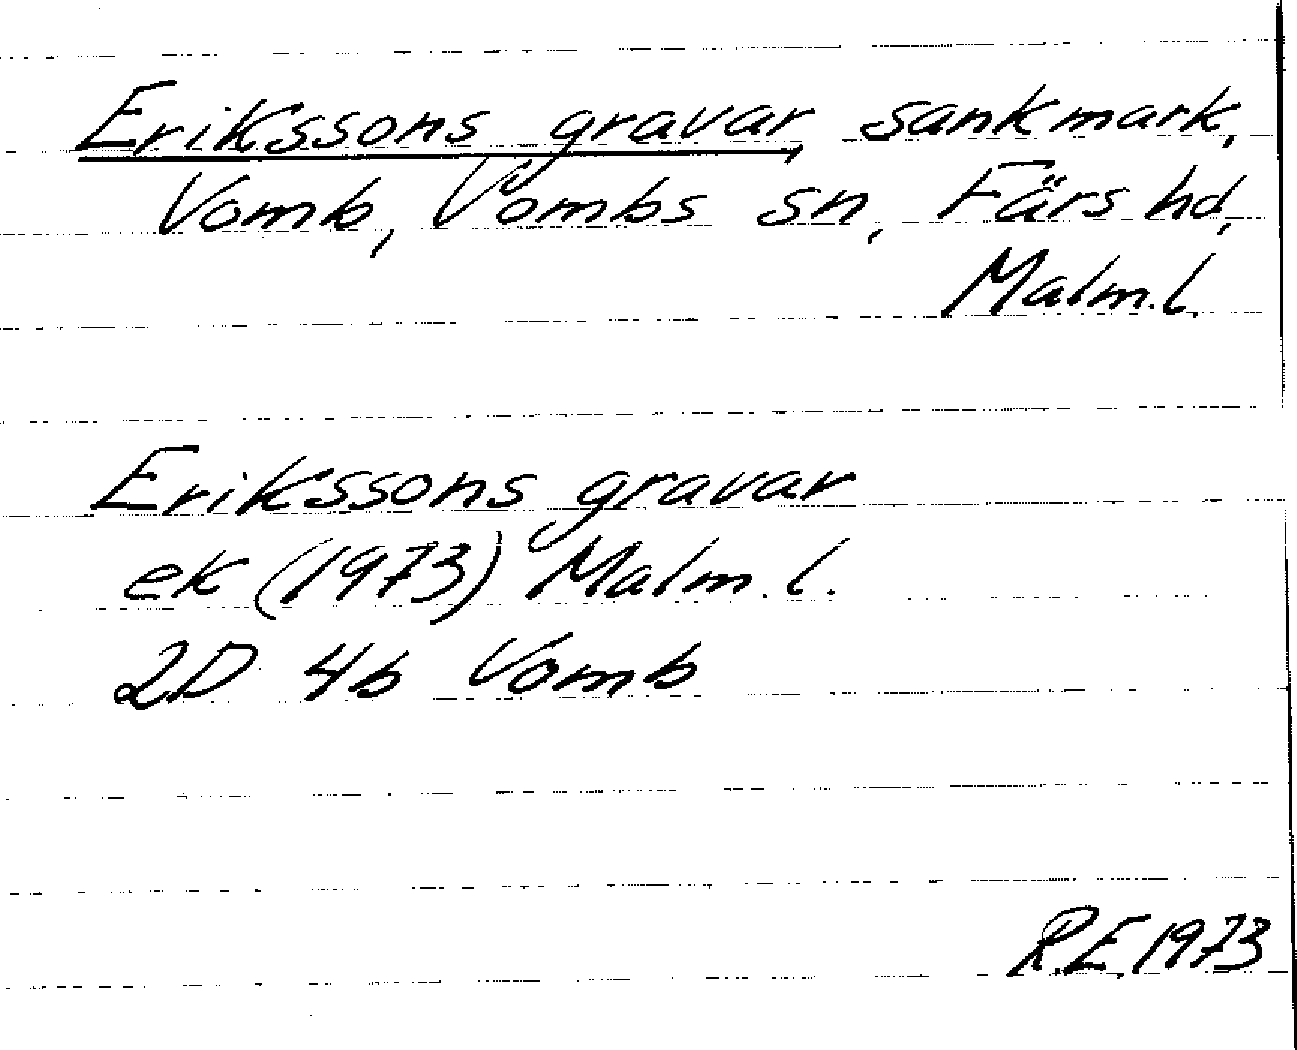 Erikssons gravar, sankmark,
Vomb, Vombs sn, Färs hd,
Malm.l.
Erikssons gravar
ek (1973) Malm.l.
2D 4b Vomb
R.E. 1973